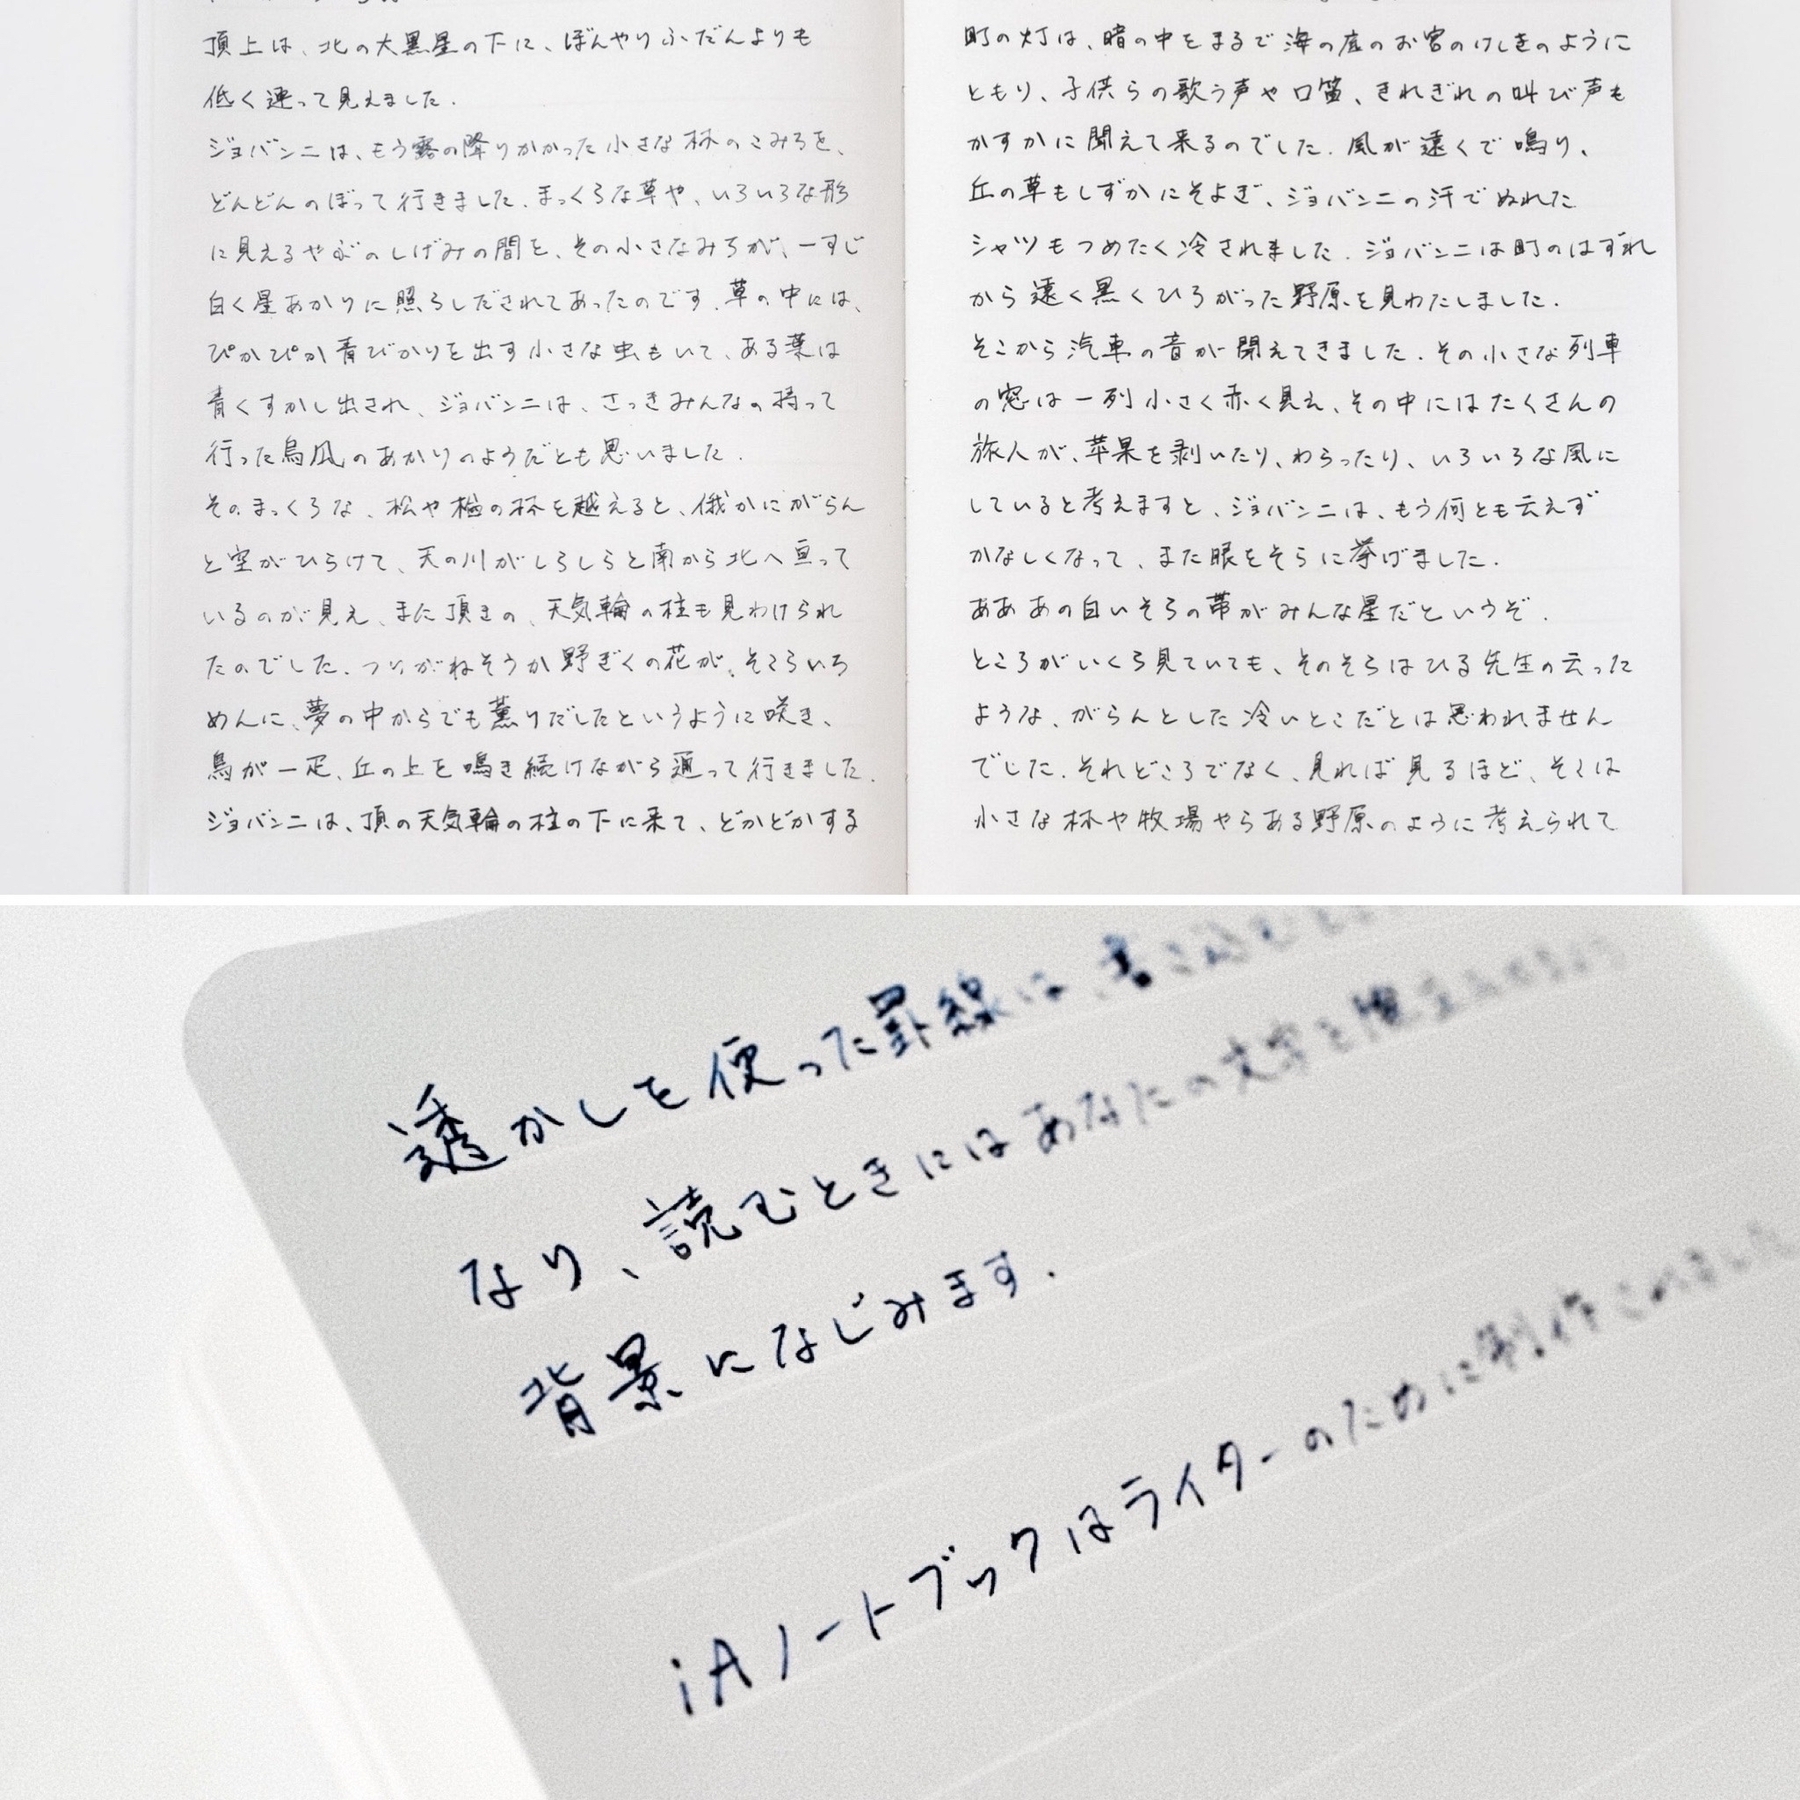 頂上は、北の大黒星の下に、ぼんやりふだんよりも
低く連って見えました.
ジョバンニは、もう露の降りかかった小さな林のこみちを、
どんどんのぼって行きました.まっくろな草や、いろいろな形
に見えるやぶのしげみの間を、その小さなみちが、一すじ
白く星あかりに照らしだされてあったのです.草の中には、
ぴかぴか青びかりを出す小さな虫もいて、ある葉は
青くすかし出され、ジョバンニは、さっきみんなの持って
行った烏瓜のあかりのようだとも思いました.
そのまっくろな、松や楢の林を越えると、俄かにがらん
と空がひらけて、天の川がしらしらと南から北へ亘って
いるのが見え、また頂きの、天気輪の柱も見わけられ
たのでした.つりがねそうか野ぎくの花が、そこらいち
めんに、夢の中からでも薫りだしたというように咲き、
鳥が一疋、丘の上を鳴き続けながら通って行きました.
ジョバンニは、頂の天気輪の柱の下に来て、どかどかする
町の灯は、暗の中をまるで海の底のお宮のけしきのように
ともり、子供らの歌う声や口笛、きれぎれの叫び声も
かすかに聞えて来るのでした.風が遠くで鳴り、
丘の草もしずかにそよぎ、ジョバンニの汗でぬれた
シャツもつめたく冷されました.ジョバンニは町のはずれ
から遠く黒くひろがった野原を見わたしました.
そこから汽車の音が聞えてきました.その小さな列車
の窓は一列小さく赤く見え、その中にはたくさんの
旅人が、苹果を剥いたり、わらったり、いろいろな風に
していると考えますと、ジョバンニは、もう何とも云えず
かなしくなって、また眼をそらに挙げました.
あああの白いそらの帯がみんな星だというぞ.
ところがいくら見ていても、そのそらはひる先生の云った
ような、がらんとした冷いとこだとは思われません
でした.それどころでなく、見れば見るほど、そこは
小さな林や牧場やらある野原のように考えられて
透かしを使った罫線は、書き込むとき
なり、読むときにはあなたの文字を際立たせるよう
背景になじみます.
iAノートブックはライターのために制作されました